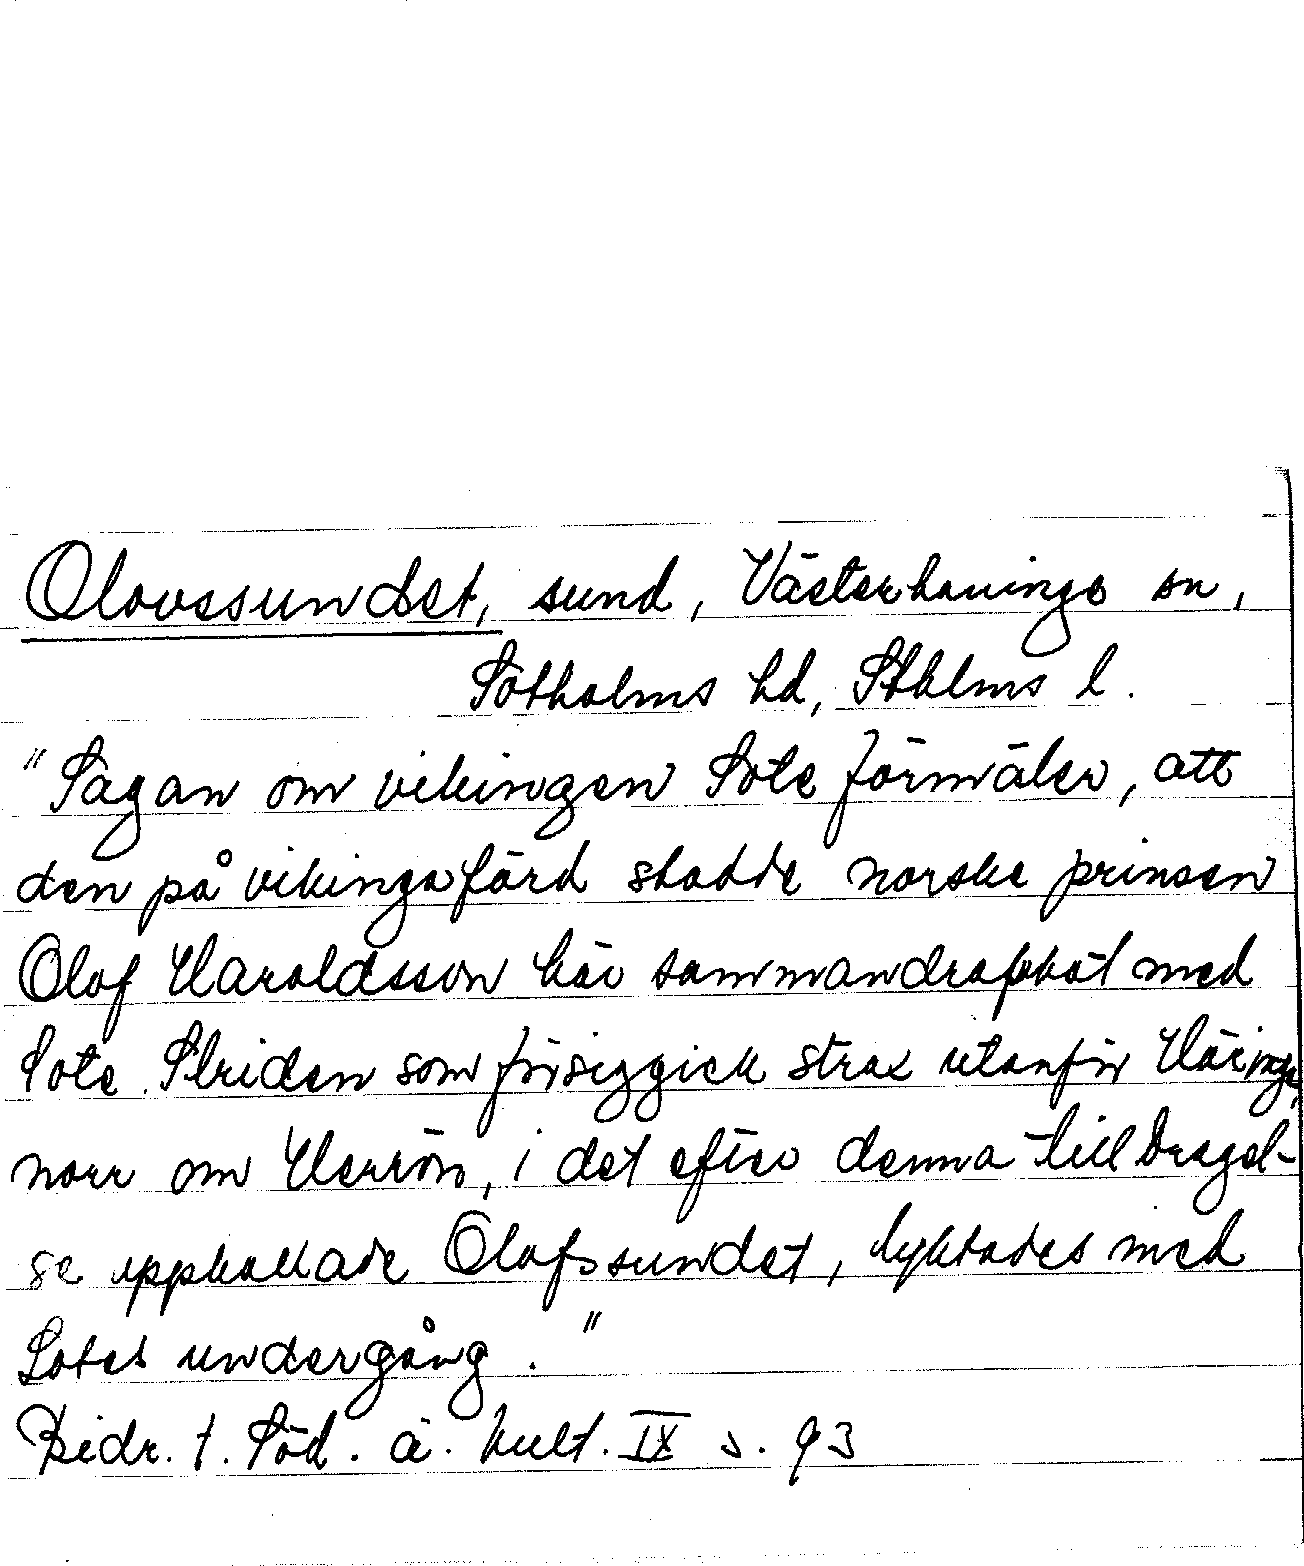 Olovssundet, sund, Västerhaninge sn,
Sotholms hd, Sthlms l.
"Sagan om vikingen Sote förmäler, att
den på vikingafärd stadde norske prinsen
Olof Haraldsson här sammandrabbat med
Sote. Striden som försiggick strax utanför Häringe,
norr om Herrön, i det efter denna tilldragel-
se uppkallade Olofssundet, lyktades med
Sotes undergång."
Bidr. t. Söd. ä. kult. IX s. 93